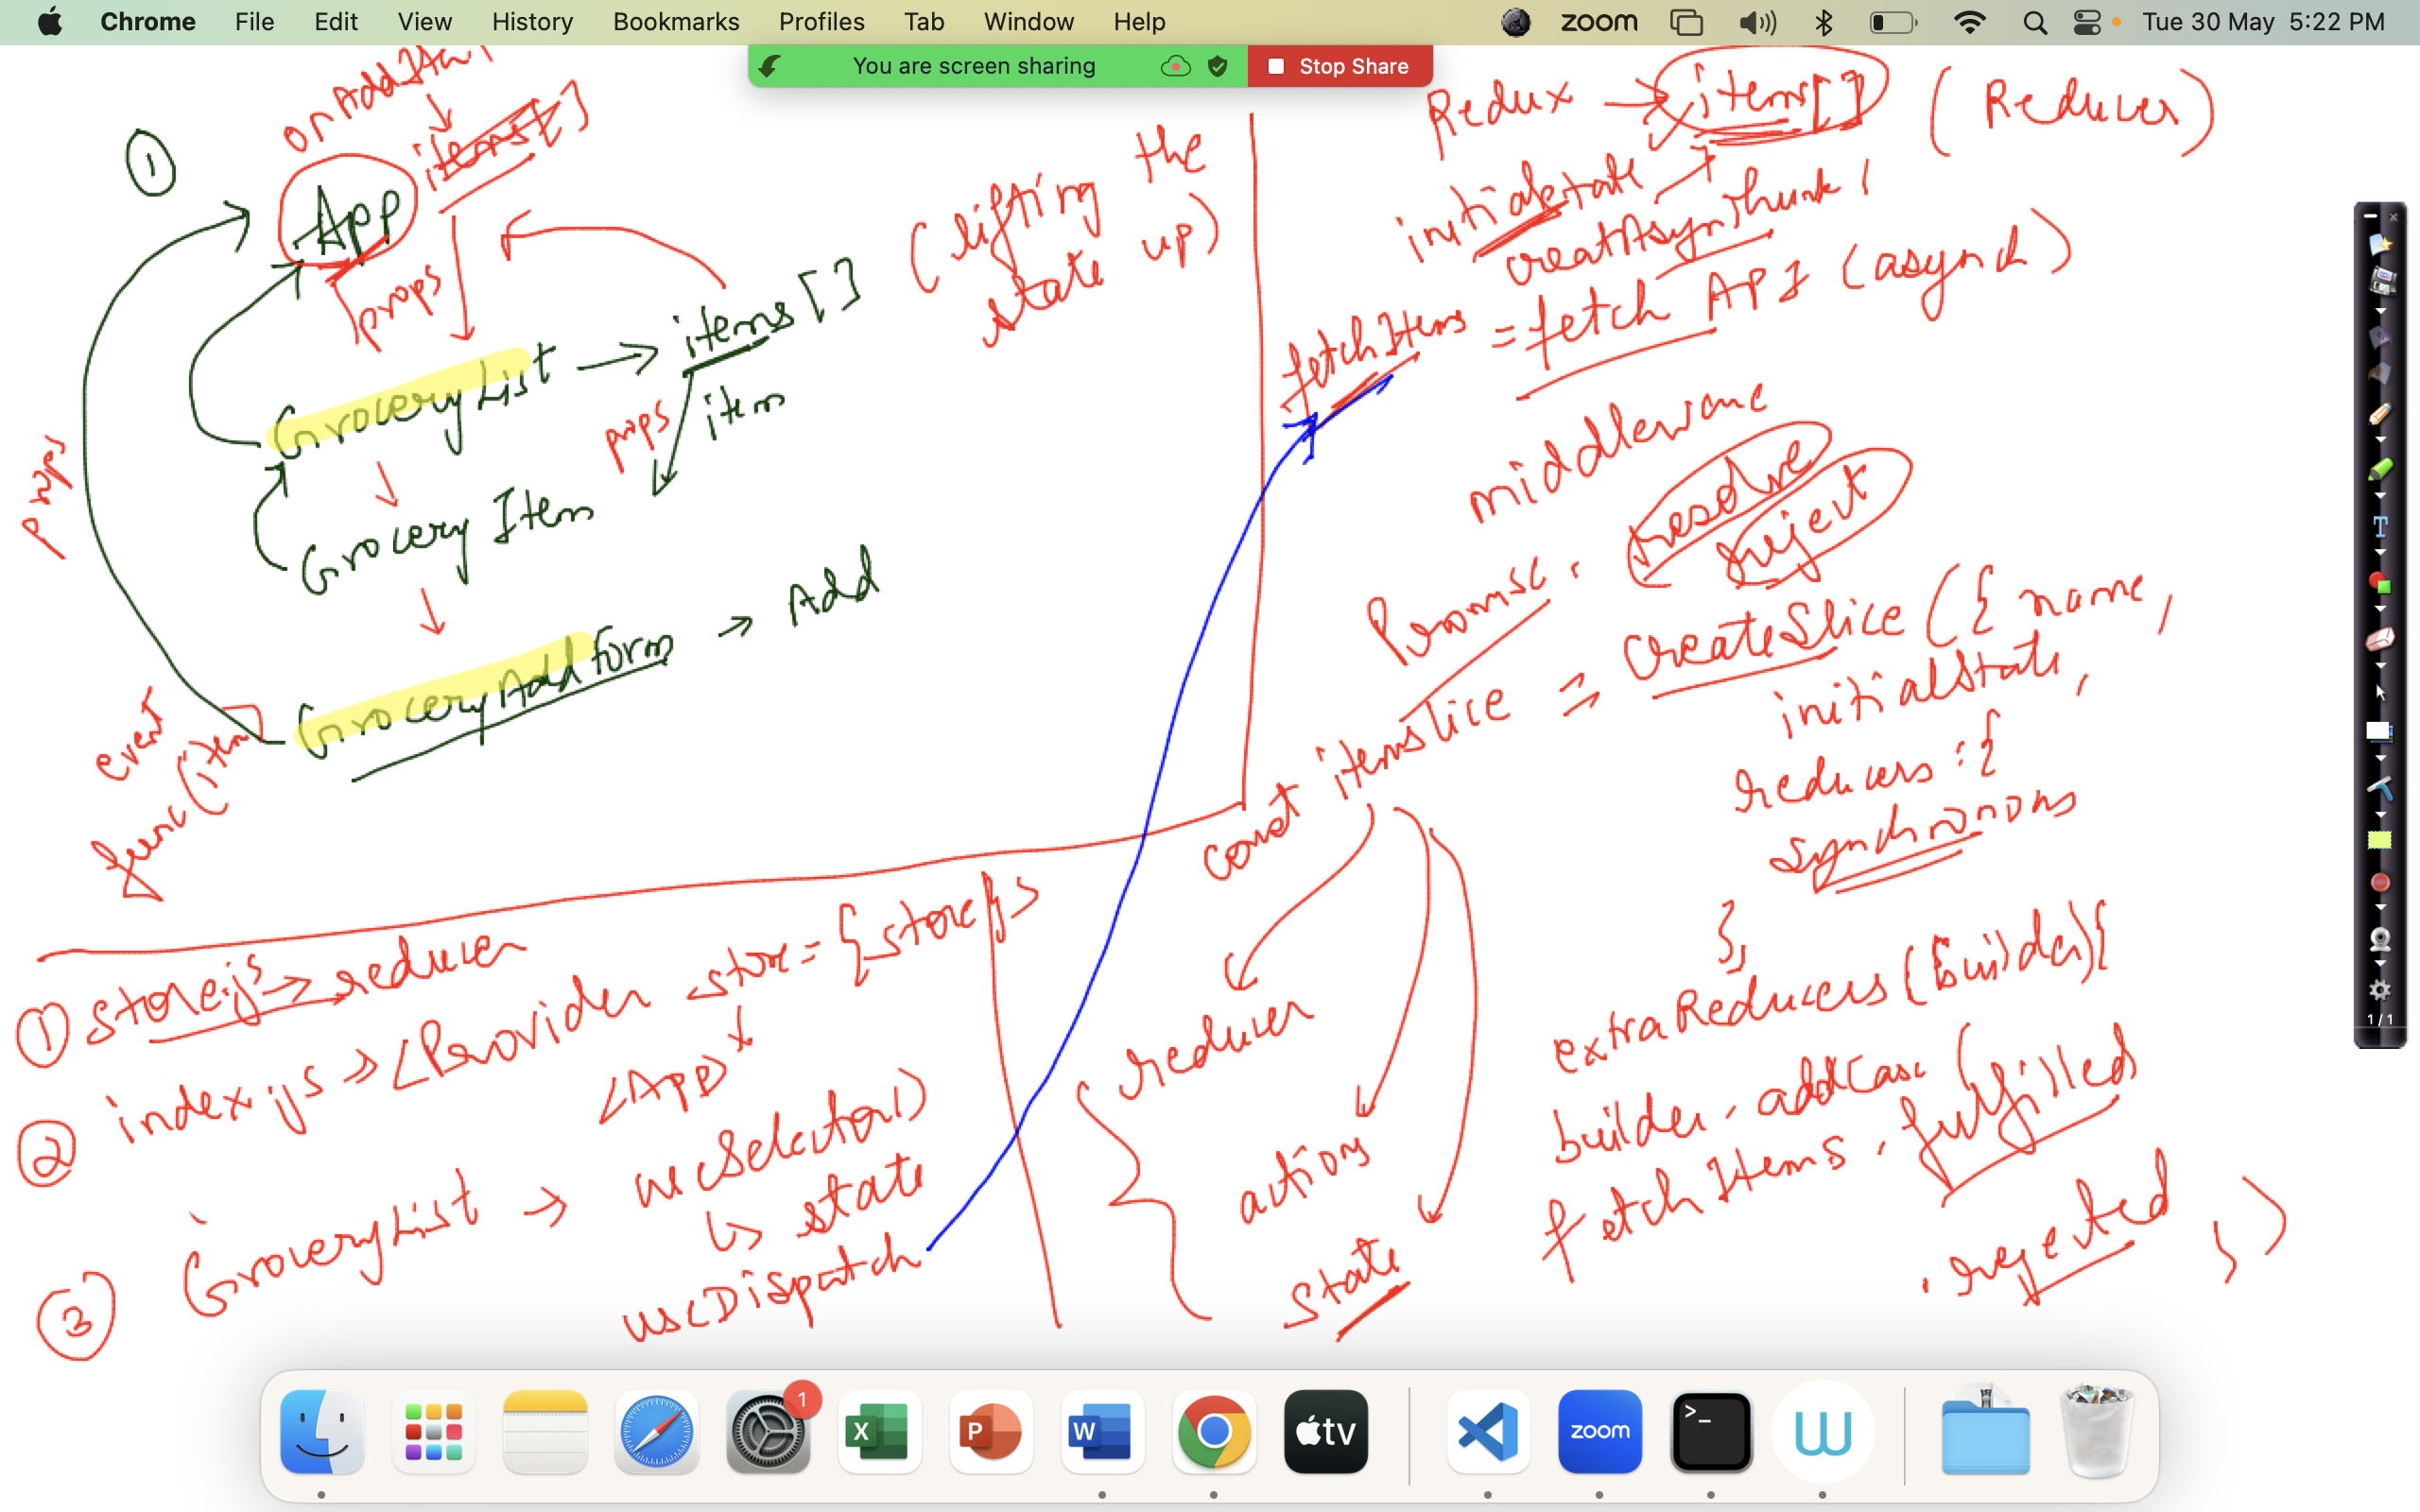 Chrome File Edit View History Bookmarks Profiles Tab Window Help
zoom Tue 30 May 5:22 PM
You are screen sharing
Stop Share
①
onAddItem
items[]
App
props
GroceryList → items[]
props
item
Grocery Item
GroceryAddForm → Add
props
event
func(item)
(lifting the
state up)
Redux → items[] (Reducer)
initialstate
creatAsynThunk
fetchItems = fetch API (asynch)
middleware
Promise.
resolve
reject
const itemslice = createSlice({ name,
initialState,
reducers: {
synchronous
},
extraReducers(builder){
builder.addCase(
fetchItems.fulfilled
.rejected
})
reducer
actions
state
① store.js → reducer
② index.js → <Provider store={store}>
<App>
③ GroceryList → useSelector()
↳ state
useDispatch
T
1/1
1
X
P
W
tv
zoom
>_